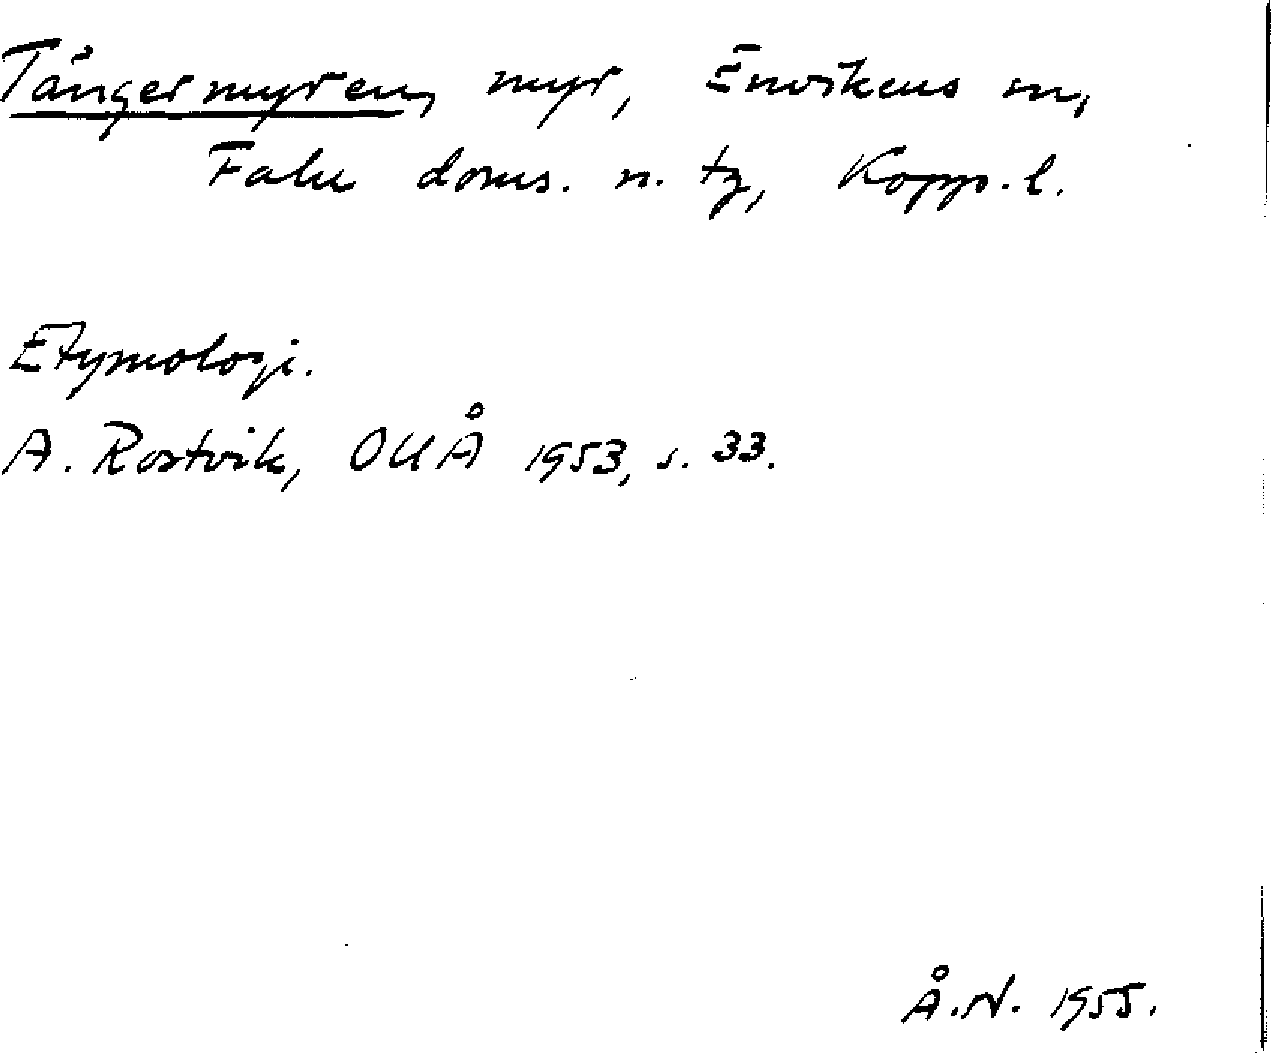 Tångermyren, myr, Envikens sn,
Falu doms. n. tg, Kopp. l.
Etymologi.
A. Rostvik, OUÅ 1953, s. 33.
Å.N. 1955.